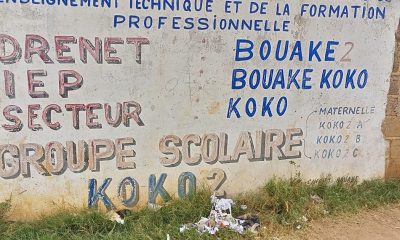 ENSEIGNEMENT TECHNIQUE ET DE LA FORMATION
PROFESSIONNELLE
DRENET BOUAKE 2
IEP BOUAKE KOKO
SECTEUR KOKO
GROUPE SCOLAIRE
MATERNELLE
KOKO 2 A
KOKO 2 B
KOKO 2 C
KOKO 2